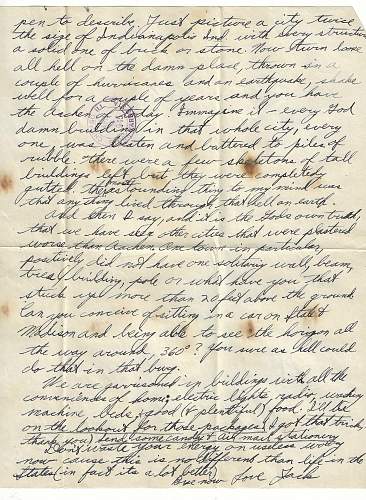 pen to describe. Just picture a city twice
the size of Indianapolis Ind. with every structure
a solid one of brick or stone. Now turn loose
all hell on the damn place, thrown in a
couple of hurricanes and an earthquake, shake
well for a couple of years and you have
the Aachen of today. Immagine it - every God
damn building in that whole city, every
one was beaten and battered to piles of
rubble. There were a few skeletons of tall
buildings left, but they were completely
gutted. The most astounding thing to my mind was
that anything lived through that hell on earth.
And then I say, and it is the Gods own truth,
that we have seen other cities that were plastered
worse than Aachen. One town in particular,
positively did not have one solitary wall, beam,
tree, building, pole or what have you that
stuck up more than 20 feet above the ground.
Can you conceive of sitting in a car on State &
Madison and being able to see the horizon all
the way around, 360°? You sure as hell could
do that in that burg.
We are garrisoned in buildings with all the
conveniences of home; electric lights, radio, washing
machine, beds, & good (& plentiful) food. I'll be
on the lookout for those packages (I got that trick,
thank you) Send some candy & air mail stationery
Don't waste your energy on useless worry
now cause this is no different than life in the
States (in fact its a lot better)
Bye now Love Jack